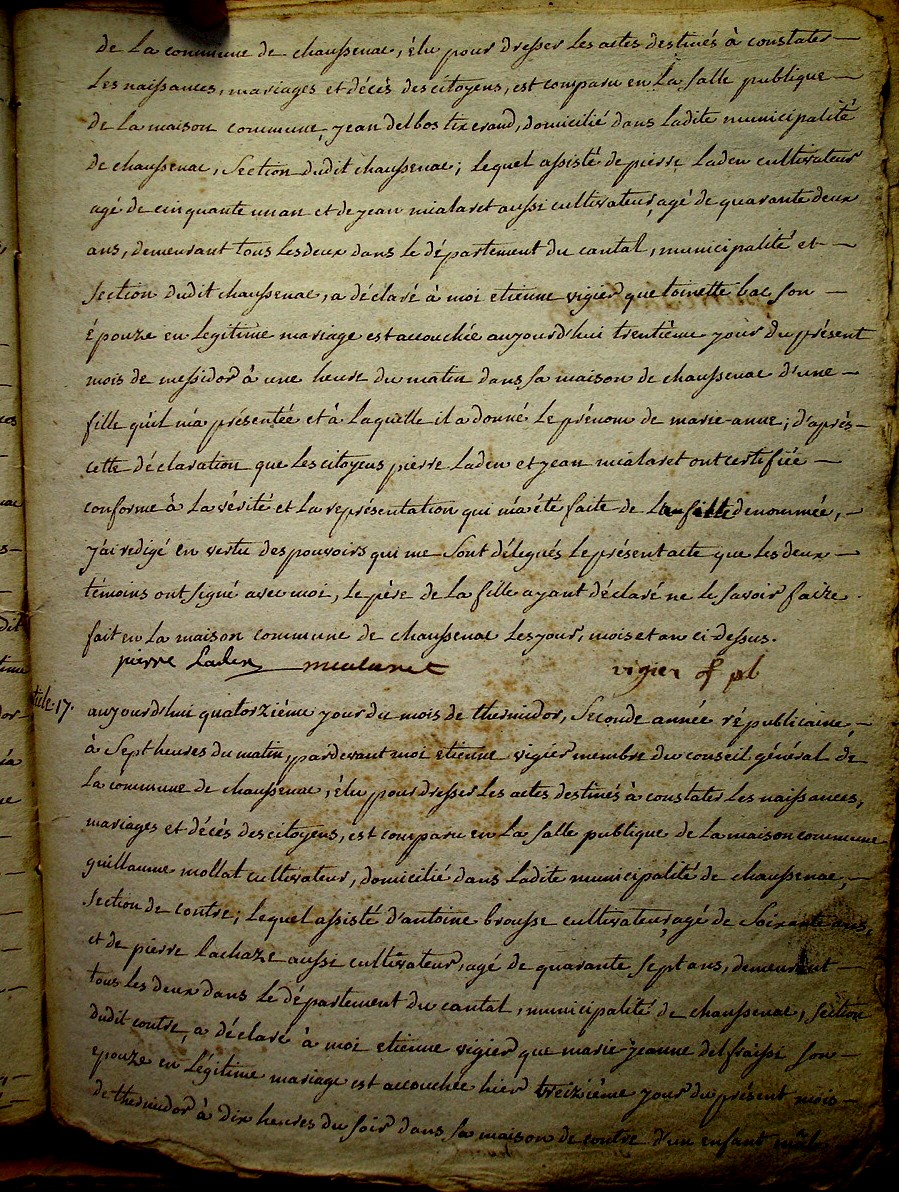 de la commune de chaussenac, élu pour dresser les actes destinés à constater —
les naissances, mariages et décès des citoyens, est comparu en la salle publique —
de la maison commune, jean delbos tixerand, domicilié dans ladite municipalité
de chaussenac, section dudit chaussenac; lequel assisté de pierre laden cultivateur
agé de cinquante un an et de jean mialaret aussi cultivateur, agé de quarante deux
ans, demeurant tous les deux dans le département du cantal, municipalité et —
section dudit chaussenac, a déclaré à moi etienne vigier que toinette bac son —
épouze en legitime mariage est accouchée aujourd'hui trentième jour du présent
mois de messidor à une heure du matin dans sa maison de chaussenac d'une —
fille qu'il m'a présentée et à laquelle il a donné le prénom de marie-anne; d'après —
cette déclaration que les citoyens pierre laden et jean mialaret ont certifiée —
conforme à la vérité et la représentation qui m'a été faite de la fille denommée, —
j'ai redigé en vertu des pouvoirs qui me sont délegués le présent acte que les deux —
témoins ont signé avec moi, le père de la fille ayant déclaré ne le savoir faire.
fait en la maison commune de chaussenac les jour, mois et an ci-dessus.
pierre Laden — mialaret vigier of pb
article 17. aujourd'hui quatorzième jour du mois de thermidor, seconde année républicaine, —
à sept heures du matin, pardevant moi etienne vigier membre du conseil général de
la commune de chaussenac, élu pour dresser les actes destinés à constater les naissances,
mariages et décès des citoyens, est comparu en la salle publique de la maison commune
guillaume mollat cultivateur, domicilié dans ladite municipalité de chaussenac, —
section de contre; lequel assisté d'antoine brousse cultivateur, agé de soixante ans,
et de pierre lachaze aussi cultivateur, agé de quarante sept ans, demeurant —
tous les deux dans le département du cantal, municipalité de chaussenac, section
dudit contre, a déclaré à moi etienne vigier que marie-jeanne delfraissi son —
epouze en légitime mariage est accouchée hier treizième jour du présent mois —
de thermidor à dix heures du soir dans sa maison de contre d'un enfant mâle